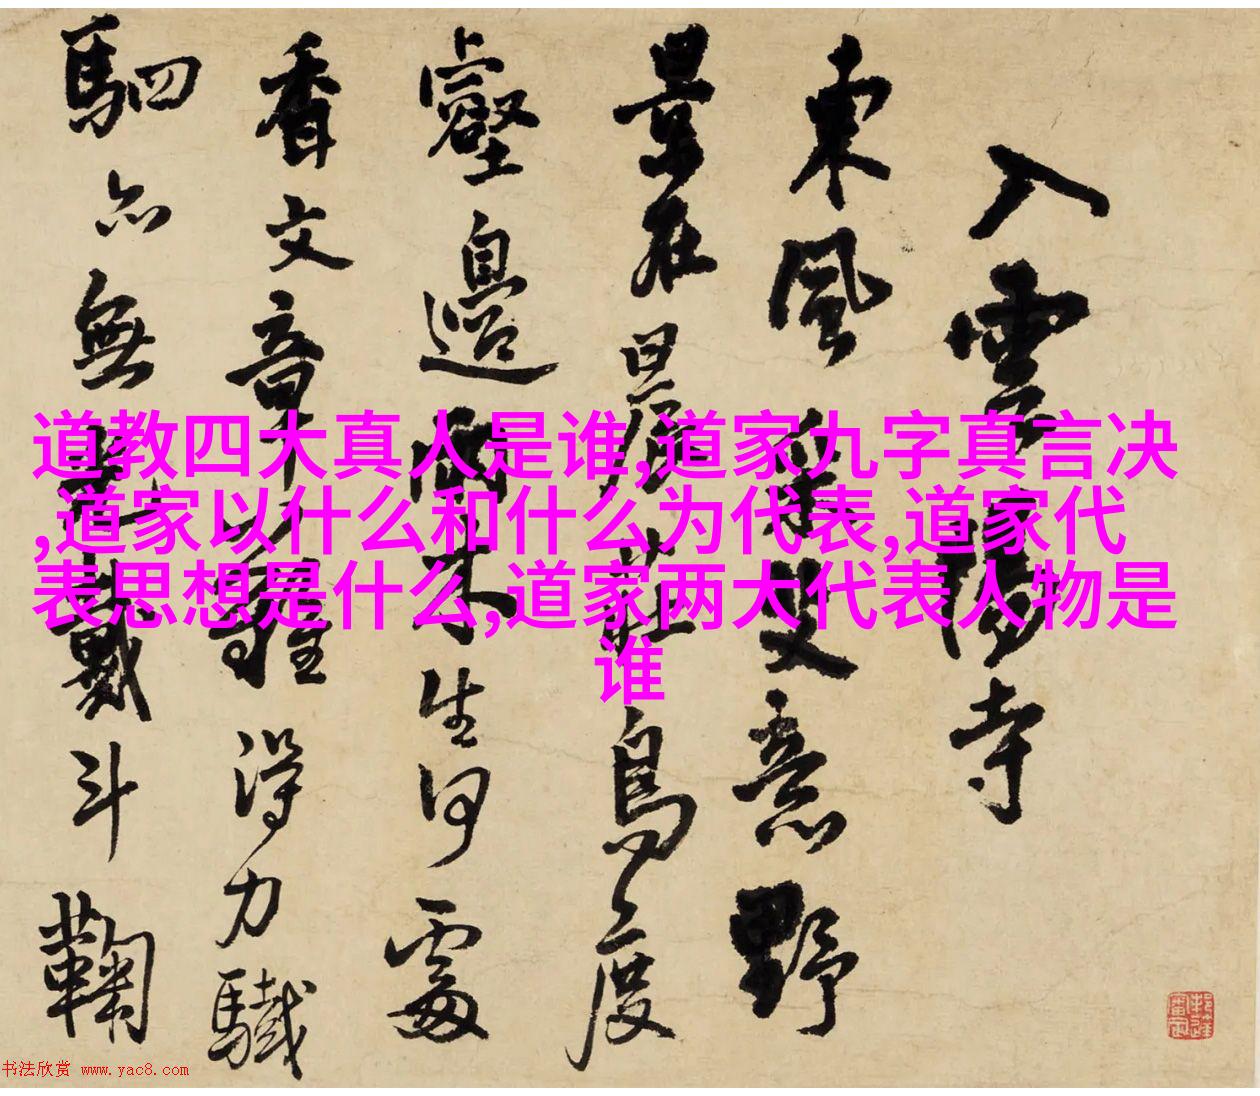 道教四大真人是谁,道家九字真言决
,道家以什么和什么为代表,道家代
表思想是什么,道家两大代表人物是
谁
入雲寺
東風意野
景在鳥度
壑邊雨木生何處
香文章雖得力驖
駟亦無斗鞠
书法欣赏 www.yac8.com